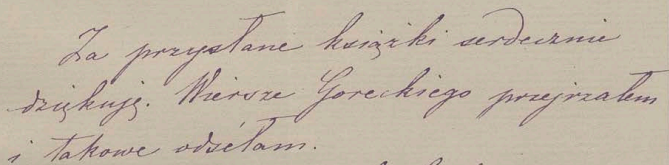 Za przysłane książki serdecznie
dziękuję. Wiersze Goreckiego przejrzałem
i takowe odséłam.